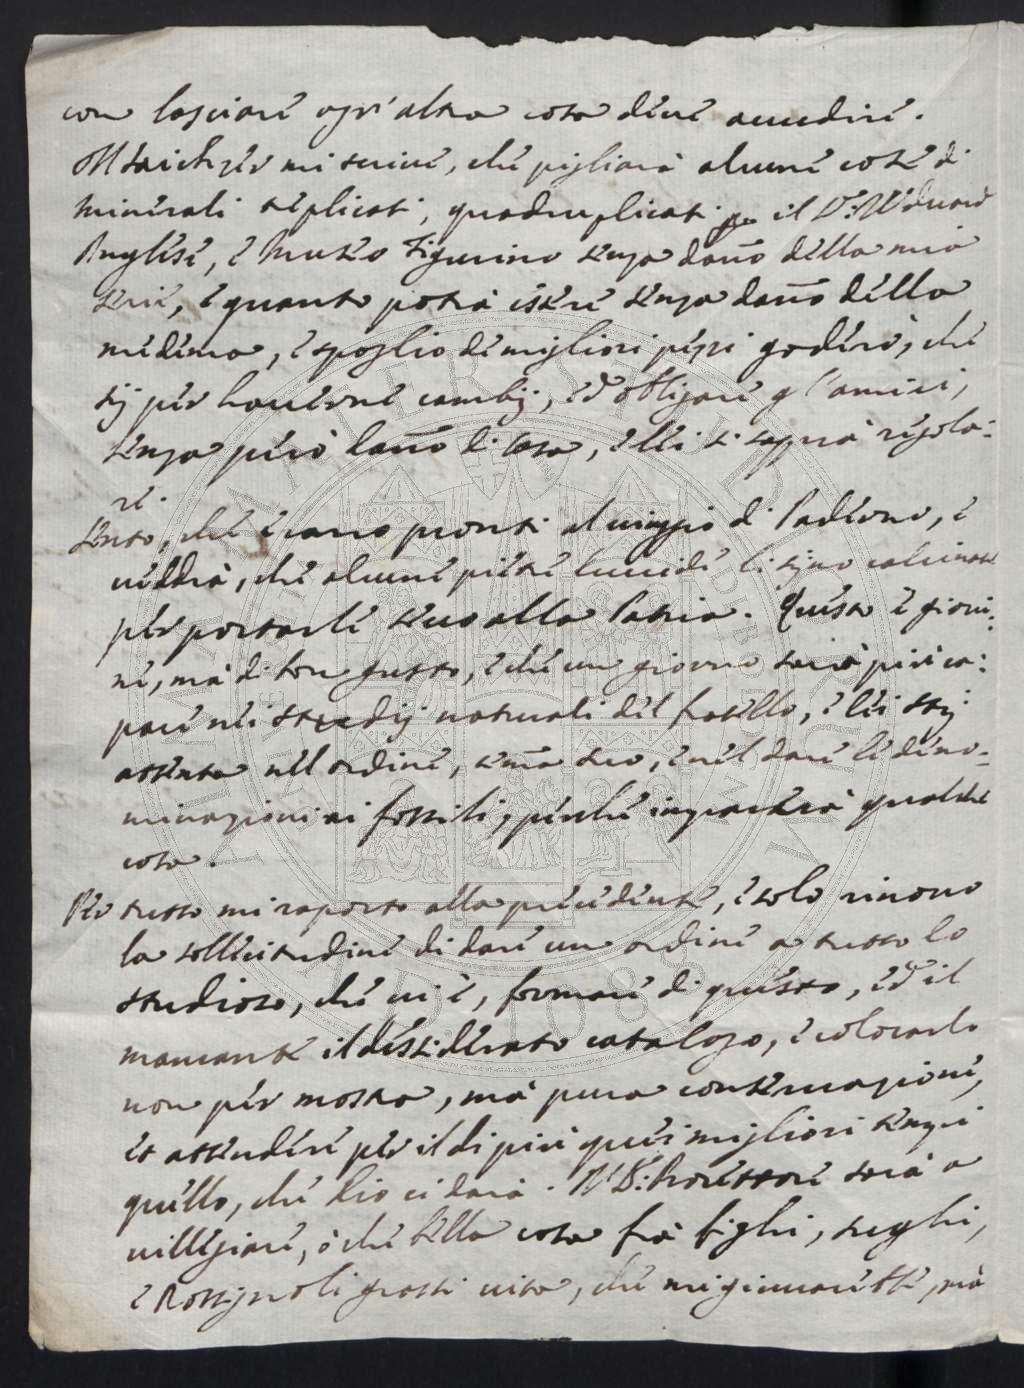 con lasciare ogn'altra cosa deve accudire.
mi scrive, che pigliarà alcune cose di
minerali triplicati, quadruplicati per il D.r Wduard
Inglese, e Museo Tigurino senza dano della mia
serie, e quanto potrà essere senza dano della
medema, e spoglio de migliori pezzi goderò, che
sij per haverne cambij, ed obligare gl'amici,
senza però dano di casa, e lei si saprà regola:
re.
Sento, che erano pronti al viaggio di Paderno, e
vedrà, che alcune pietre lucide li sijno calcinate
per portarle seco alla Patria. Questo è giovi:
ne, mà di bon gusto, e che un giorno sarà più ca:
pace nei studij naturali del fratello, e lei stij
attento nell'ordine, sema suo, e nel dare le deno-
minazioni ai fossili, perché imparerà qualche
cosa.
Per tutto mi raporto alla precedente, e solo rinovo
la sollecitudine di dare un ordine a tutto lo
studioso, che vi è, formare di questo, ed il
mancante il desiderato catalogo, e colocarlo
non per mostra, mà pura conservazione,
et attendere per il di più quei migliori tempi
quello, che Dio ci darà. Il S.r Professore sarà a
villegiare, ò che bella cosa frà fighi, meglhi,
e Rossignoli grassi vita, che mi giovarebbe, mà